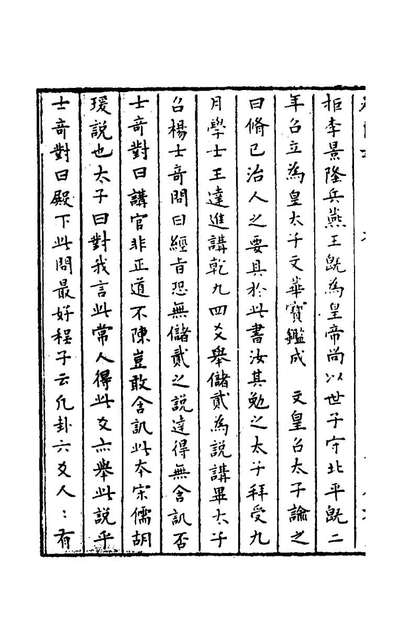 拒李景隆兵燕王既為皇帝尚以世子守北平既二
年召立為皇太子文華寳鑑成　文皇召太子諭之
曰脩已治人之要具於此書汝其勉之太子拜受九
月學士王達進講乾九四爻舉儲貳為說講畢太子
召楊士竒問曰經旨恐無儲貳之說達得無含訊否
士竒對曰講官非正道不陳豈敢含訊此本宋儒胡
瑗說也太子曰對我言此常人得此爻亦舉此說乎
士竒對曰殿下此問最好程子云凢卦六爻人：有